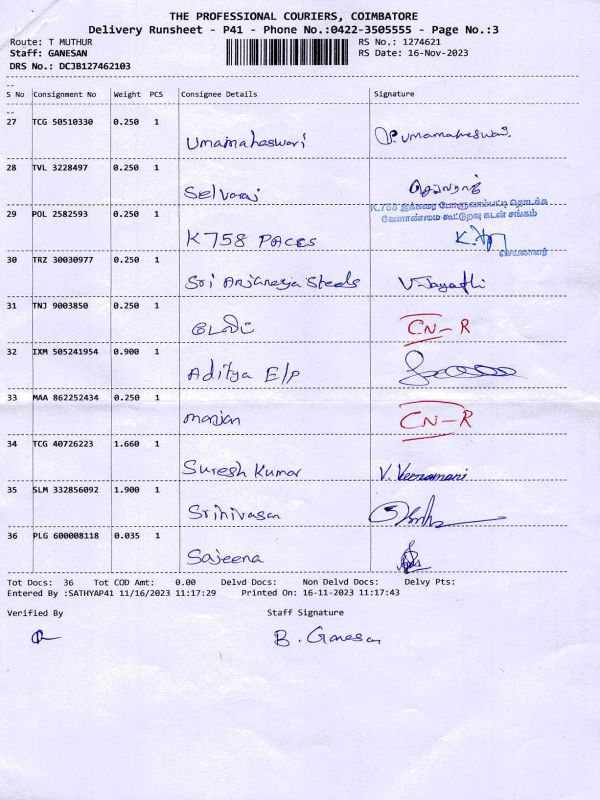 THE PROFESSIONAL COURIERS, COIMBATORE
Delivery Runsheet - P41 - Phone No.:0422-3505555 - Page No.:3
Route: T MUTHUR RS No.: 1274621
Staff: GANESAN RS Date: 16-Nov-2023
DRS No.: DCJB127462103
S No Consignment No Weight PCS Consignee Details Signature
27 TCG 50510330 0.250 1 Umamaheswari P. Umamaheswari.
28 TVL 3228497 0.250 1 Selvaraj செல்வராஜ்
K.758 இக்கரை போளுவாம்பட்டி தொடக்க
வேளாண்மை கூட்டுறவு கடன் சங்கம்
29 POL 2582593 0.250 1 K 758 PACCS
செயலாளர்
30 TRZ 30030977 0.250 1 Sri Anjaneya Steels V. Jayanthi
31 TNJ 9003850 0.250 1 CN-R
32 IXM 505241954 0.900 1 Aditya E/P
33 MAA 862252434 0.250 1 CN-R
34 TCG 40726223 1.660 1 Suresh Kumar V. Veeramani
35 SLM 332856092 1.900 1 Srinivasan
36 PLG 600008118 0.035 1 Sajeena
Tot Docs: 36 Tot COD Amt: 0.00 Delvd Docs: Non Delvd Docs: Delvy Pts:
Entered By :SATHYAP41 11/16/2023 11:17:29 Printed On: 16-11-2023 11:17:43
Verified By Staff Signature
B. Ganesan